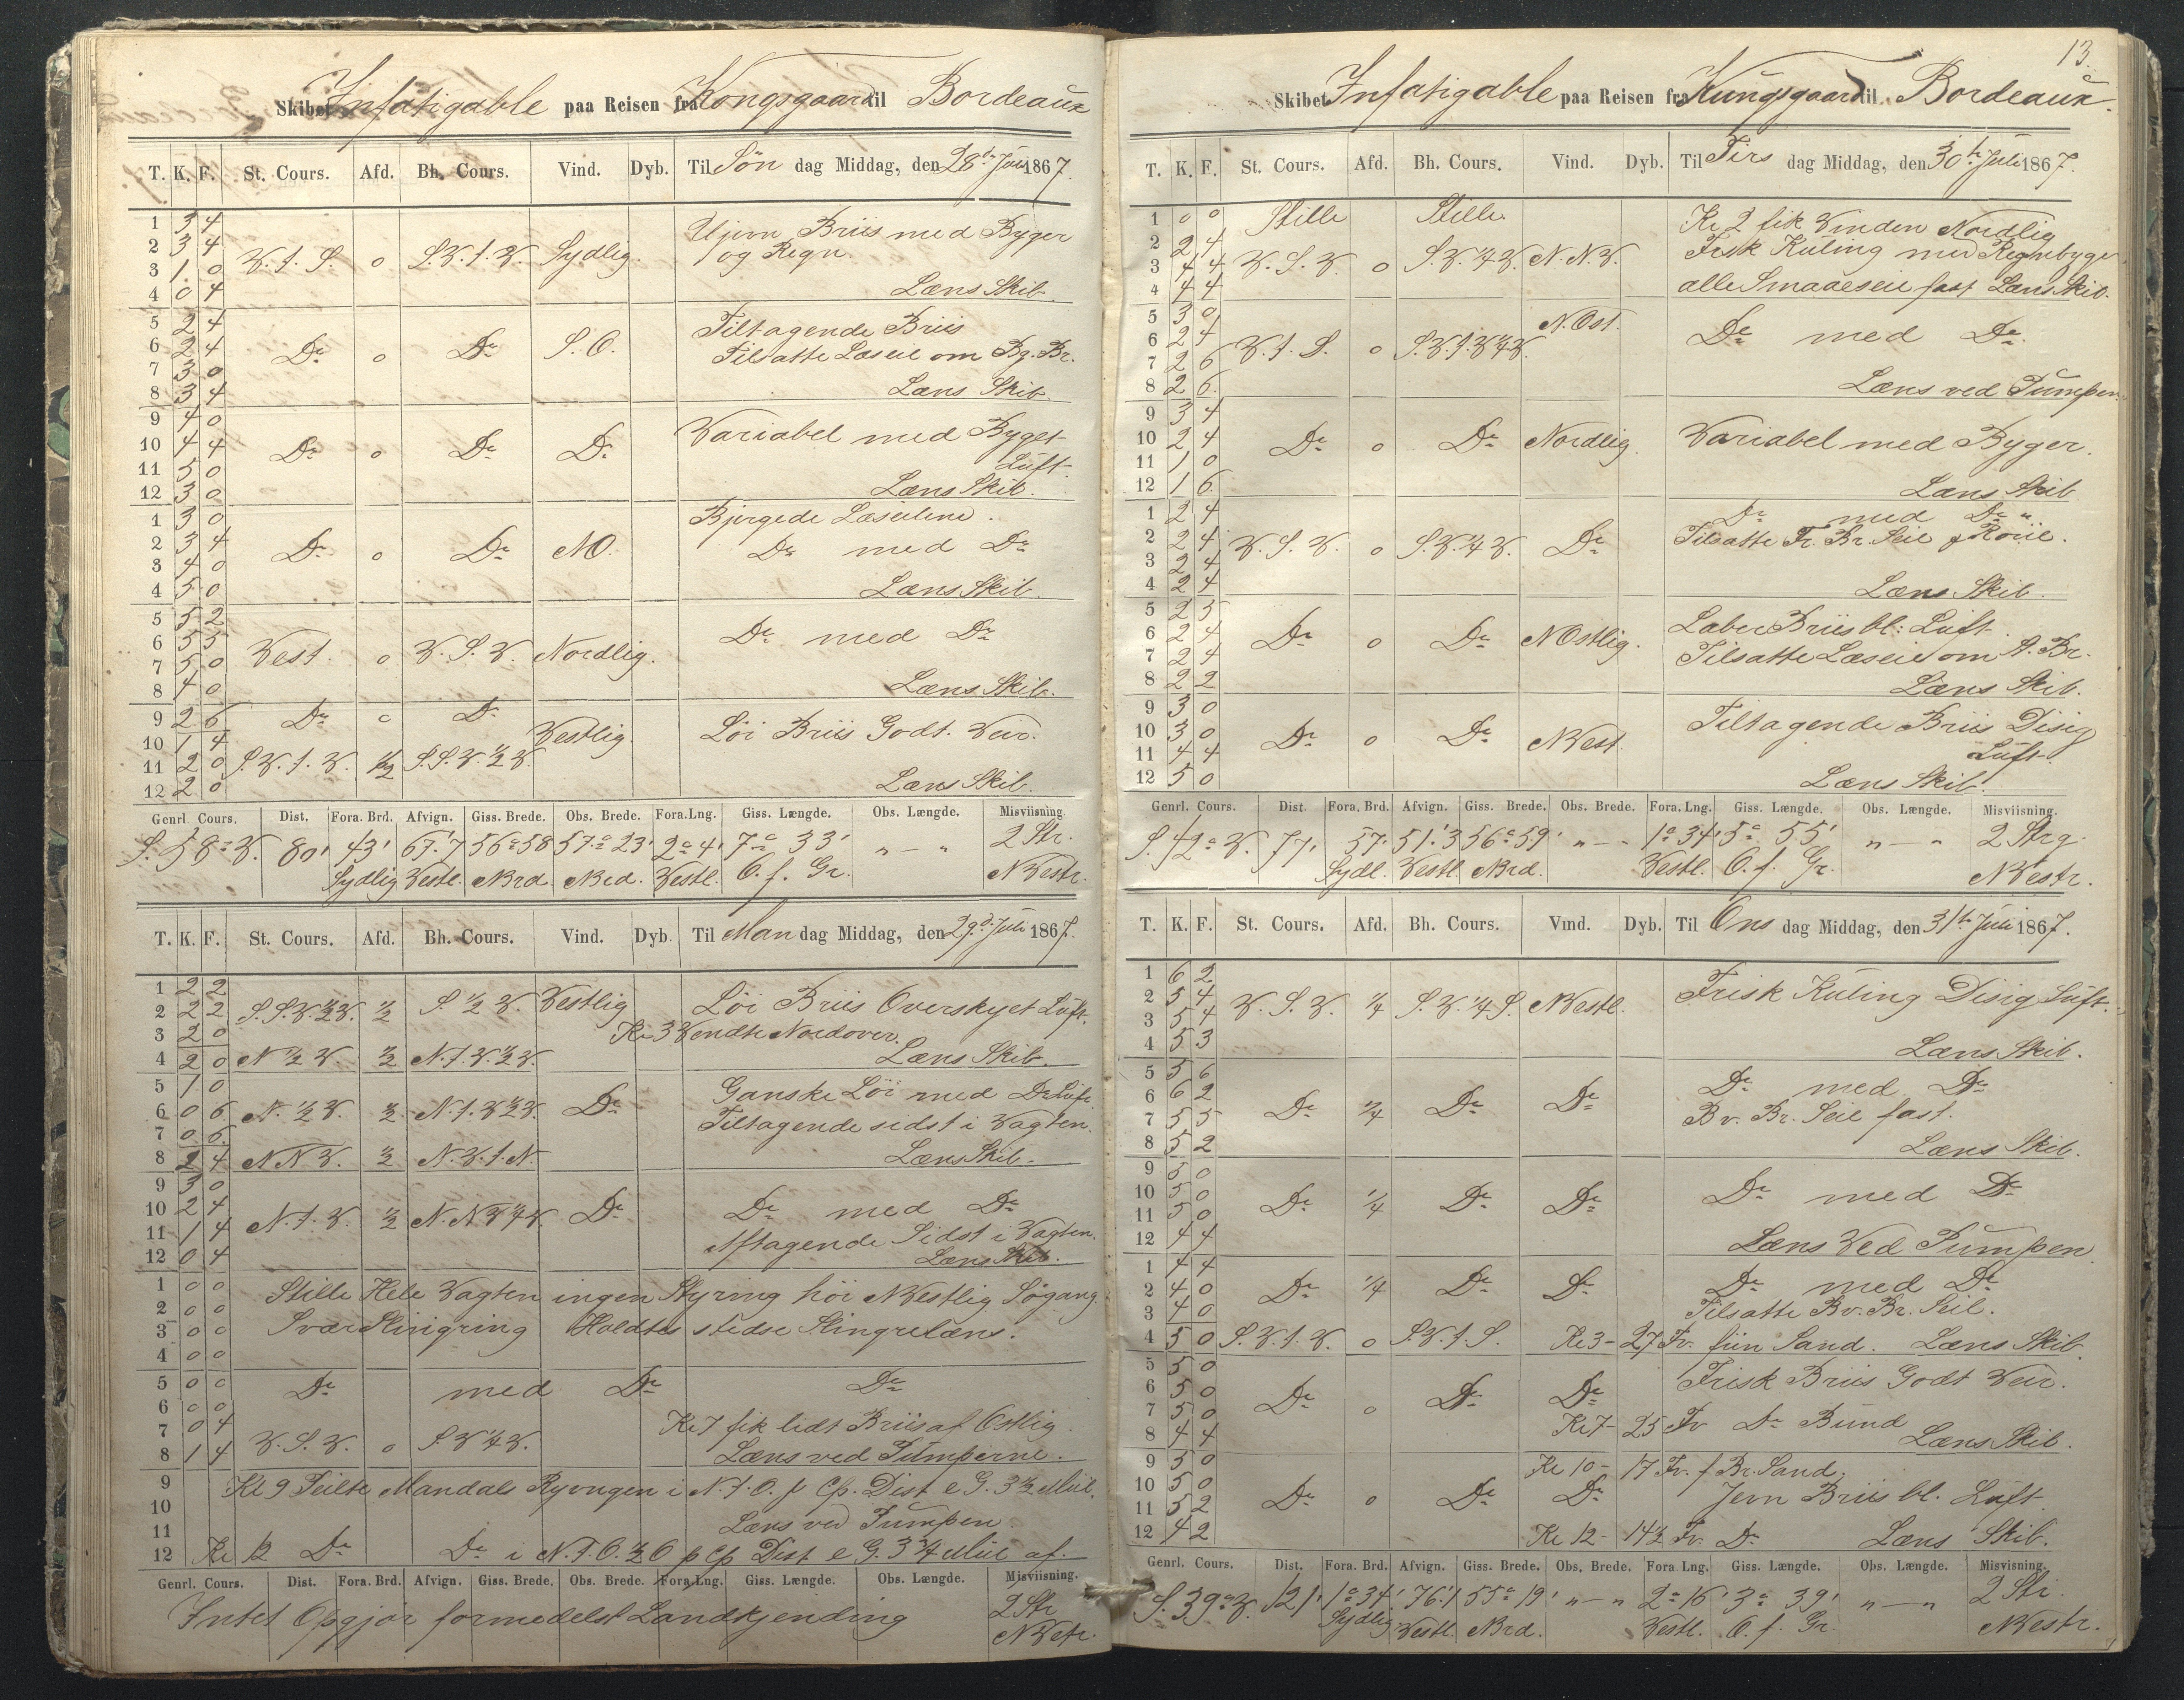 Skibet Infatigable paa Reisen fra Kongsgaard til Bordeaux
T. K. F. St. Cours. Afd. Bh. Cours. Vind. Dyb. Til Søn dag Middag, den 28de Juli 1867.
1 3 4 Ujevn Briis med Byger
2 3 4 V. t. S. o S.V. t. V. Sydlig. og Regn.
3 1 0
4 0 4 Læns Skib.
5 2 4 Tiltagende Briis
6 2 4 Do o Do S.O. Tilsatte Læseil om Bg. Br.
7 3 0
8 3 4 Læns Skib.
9 4 0 Variabel med Byget
10 4 4 Do o Do Do
11 5 0 Luft.
12 3 0 Læns Skib.
1 3 0 Bjergede Læseilene.
2 3 4 Do o Do NO. Do med Do
3 4 0
4 5 0 Læns Skib.
5 5 2
6 5 5 Vest. o V.S.V. Nordlig. Do med Do
7 5 0
8 4 0 Læns Skib.
9 2 6 Do o Do
10 1 4 Vestlig. Löi Briis Godt Veir.
11 2 0 S.V. t. V. 1/2 S.S.V. 1/2 V.
12 2 0 Læns Skib.
Genrl. Cours. Dist. Fora. Brd. Afvign. Giss. Brede. Obs. Brede. Fora. Lng. Giss. Længde. Obs. Længde. Misviisning.
S. 58° V. 80' 43' 67'.7 56° 58 57° 23' 2° 4' 7° 33' „ — „ 2 Str.
Sydlig Vestl. Nrd. Nrd. Vestl. O. f. Gr. NVestr.
T. K. F. St. Cours. Afd. Bh. Cours. Vind. Dyb. Til Man dag Middag, den 29d. Juli 1867.
1 2 2
2 2 2 S.S.V. 1/2 V. 1/2 S. 1/2 V. Vestlig Löi Briis Overskyet Luft.
3 2 0 Kl 3 Vendte Nordover.
4 2 0 N 1/2 V. 1/2 N. t. V. 1/2 V. Læns Skib.
5 1 0 Ganske Löi med Do Luft.
6 0 6 N. 1/2 V. 1/2 N. t. V 1/2 V. Do Tiltagende sidst i Vagten.
7 0 6
8 2 4 N N V. 1/2 N. V. t. N. Læns Skib.
9 3 0
10 2 4 N. t. V. 1/2 N. N V 1/4 V. Do Do med Do
11 1 4 Aftagende Sidst i Vagten.
12 0 4 Læns Skib.
1 0 0 Stille Hele Vagten ingen Styring höi NVestlig Sögang.
2 0 0
3 0 0 Svær Slingring Holdtes stedse Slingrelæns.
4 0 0
5 0 0 Do med Do Do
6 0 0
7 0 4 Kl 7 fik lidt Briis af Ostlig
8 1 4 V. S. V. o S.V 1/4 V. Læns ved Pumperne.
9 Kl 9 Peilte Mandals Ryvingen i N. t. O. p Cp. Dist e G. 3 1/2 Miil.
10
11 Læns ved Pumpen.
12 Kl 12 Do Do i N. t. O. 1/2 O p Cp Dist e G. 3 3/4 Miil af.
Genrl. Cours. Dist. Fora. Brd. Afvign. Giss. Brede. Obs. Brede. Fora. Lng. Giss. Længde. Obs. Længde. Misviisning.
Intet Opgjör formedelst Landkjending 2 Str
NVstr.
13.
Skibet Infatigable paa Reisen fra Kungsgaard til Bordeaux.
T. K. F. St. Cours. Afd. Bh. Cours. Vind. Dyb. Til Tirs dag Middag, den 30te Juli 1867.
1 0 0 Stille Stille. Kl 2 fik Vinden Nordlig
2 2 4 Frisk Kuling med Regnbyger
3 4 4 V. S. V. o S.V. 1/4 V. N. N. V.
4 4 4 alle Smaaeseil fast Læns Skib.
5 3 0 N. Ost.
6 2 4 Do med Do
7 2 6 V. t. S. o S.V. t. V 1/4 V.
8 2 6. Læns ved Pumpen.
9 3 4
10 2 4 Do o Do Nordlig. Variabel med Byger.
11 1 0
12 1 6. Læns Skib
1 2 4 Do med Do „
2 2 4 V. S. V. o S.V. 1/4 V. Do Tilsatte Fr. Br. Seil & Roiil.
3 2 4
4 2 4 Læns Skib.
5 2 5 Laber Briis bl: Luft
6 2 4 Do o Do NOstlig.
7 2 4 Tilsatte Læseil om A. Br.
8 2 2 Læns Skib.
9 3 0 Tiltagende Briis Disig
10 3 0 Do o Do NVest.
11 4 4 Luft.
12 5 0 Læns Skib.
Genrl. Cours. Dist. Fora. Brd. Afvign. Giss. Brede. Obs. Brede. Fora. Lng. Giss. Længde. Obs. Længde. Misviisning.
S. 42° V. 77' 57' 51'.3 56° 59' „ — „ 1° 34' 5° 55' „ — „ 2 Strg.
Sydl. Vestl. Nrd. Vestl. O. f. Gr. NVestr.
T. K. F. St. Cours. Afd. Bh. Cours. Vind. Dyb. Til Ons dag Middag, den 31te Juli 1867.
1 6 2 Frisk Kuling Disig Luft.
2 5 4 V. S. V. 1/4 S.V. 1/4 S. NVestl.
3 5 4
4 5 3 Læns Skib.
5 5 6 Do med Do
6 6 2 Do 1/4 Do Do
7 5 5 Bv. Br. Seil fast.
8 5 2 Læns Skib.
9 5 0
10 5 0 Do 1/4 Do Do Do med Do
11 5 0
12 4 4 Læns Ved Pumpen
1 4 4
2 4 0 Do 1/4 Do Do Do med Do
3 4 0 Tilsatte Bv. Br. Seil.
4 5 0 S.V. t. V. o S.V. t. S. Kl 3 - 27 Fv. fiin Sand. Læns Skib.
5 5 0 Frisk Briis Godt Veir.
6 5 0 Do o Do Do
7 5 0 Kl 7 - 25 Fv Do Bund
8 4 4 Læns Skib.
9 5 0 Kl 10 - 17 Fv. f Br. Sand.
10 5 0
11 5 2 Do o Do Do Jevn Briis bl. Luft
12 4 2 Kl 12 - 14 1/2 Fv. Do Læns Skib.
Genrl. Cours. Dist. Fora. Brd. Afvign. Giss. Brede. Obs. Brede. Fora. Lng. Giss. Længde. Obs. Længde. Misvisning.
S. 39° V. 121' 1° 34' 76'.1 55° 19' „ — „ 2° 16' 3° 39' „ — „ 2 Str
Sydlig Vestl. Nrd. Vestl. O. f. Gr. NVestr.